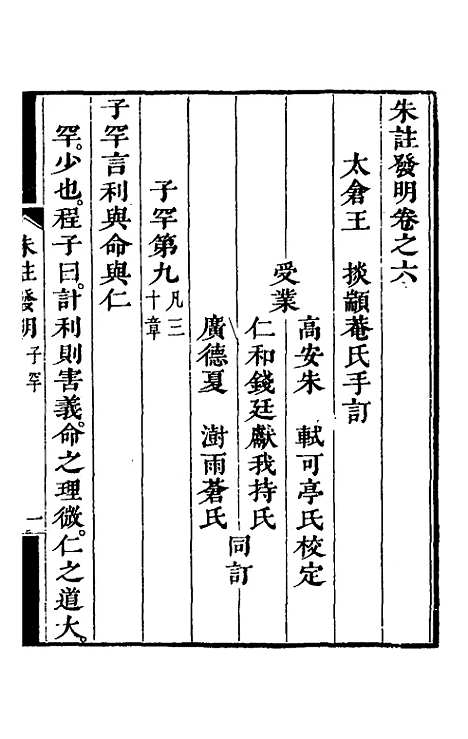 朱註發明卷之六
太倉王 掞顓菴氏手訂
高安朱 軾可亭氏校定
受業
仁和錢廷獻我持氏
同訂
廣德夏 澍雨蒼氏
子罕第九凡三十章
子罕言利與命與仁
罕。少也。程子曰。計利則害義。命之理微。仁之道大。
朱註發明 子罕 一